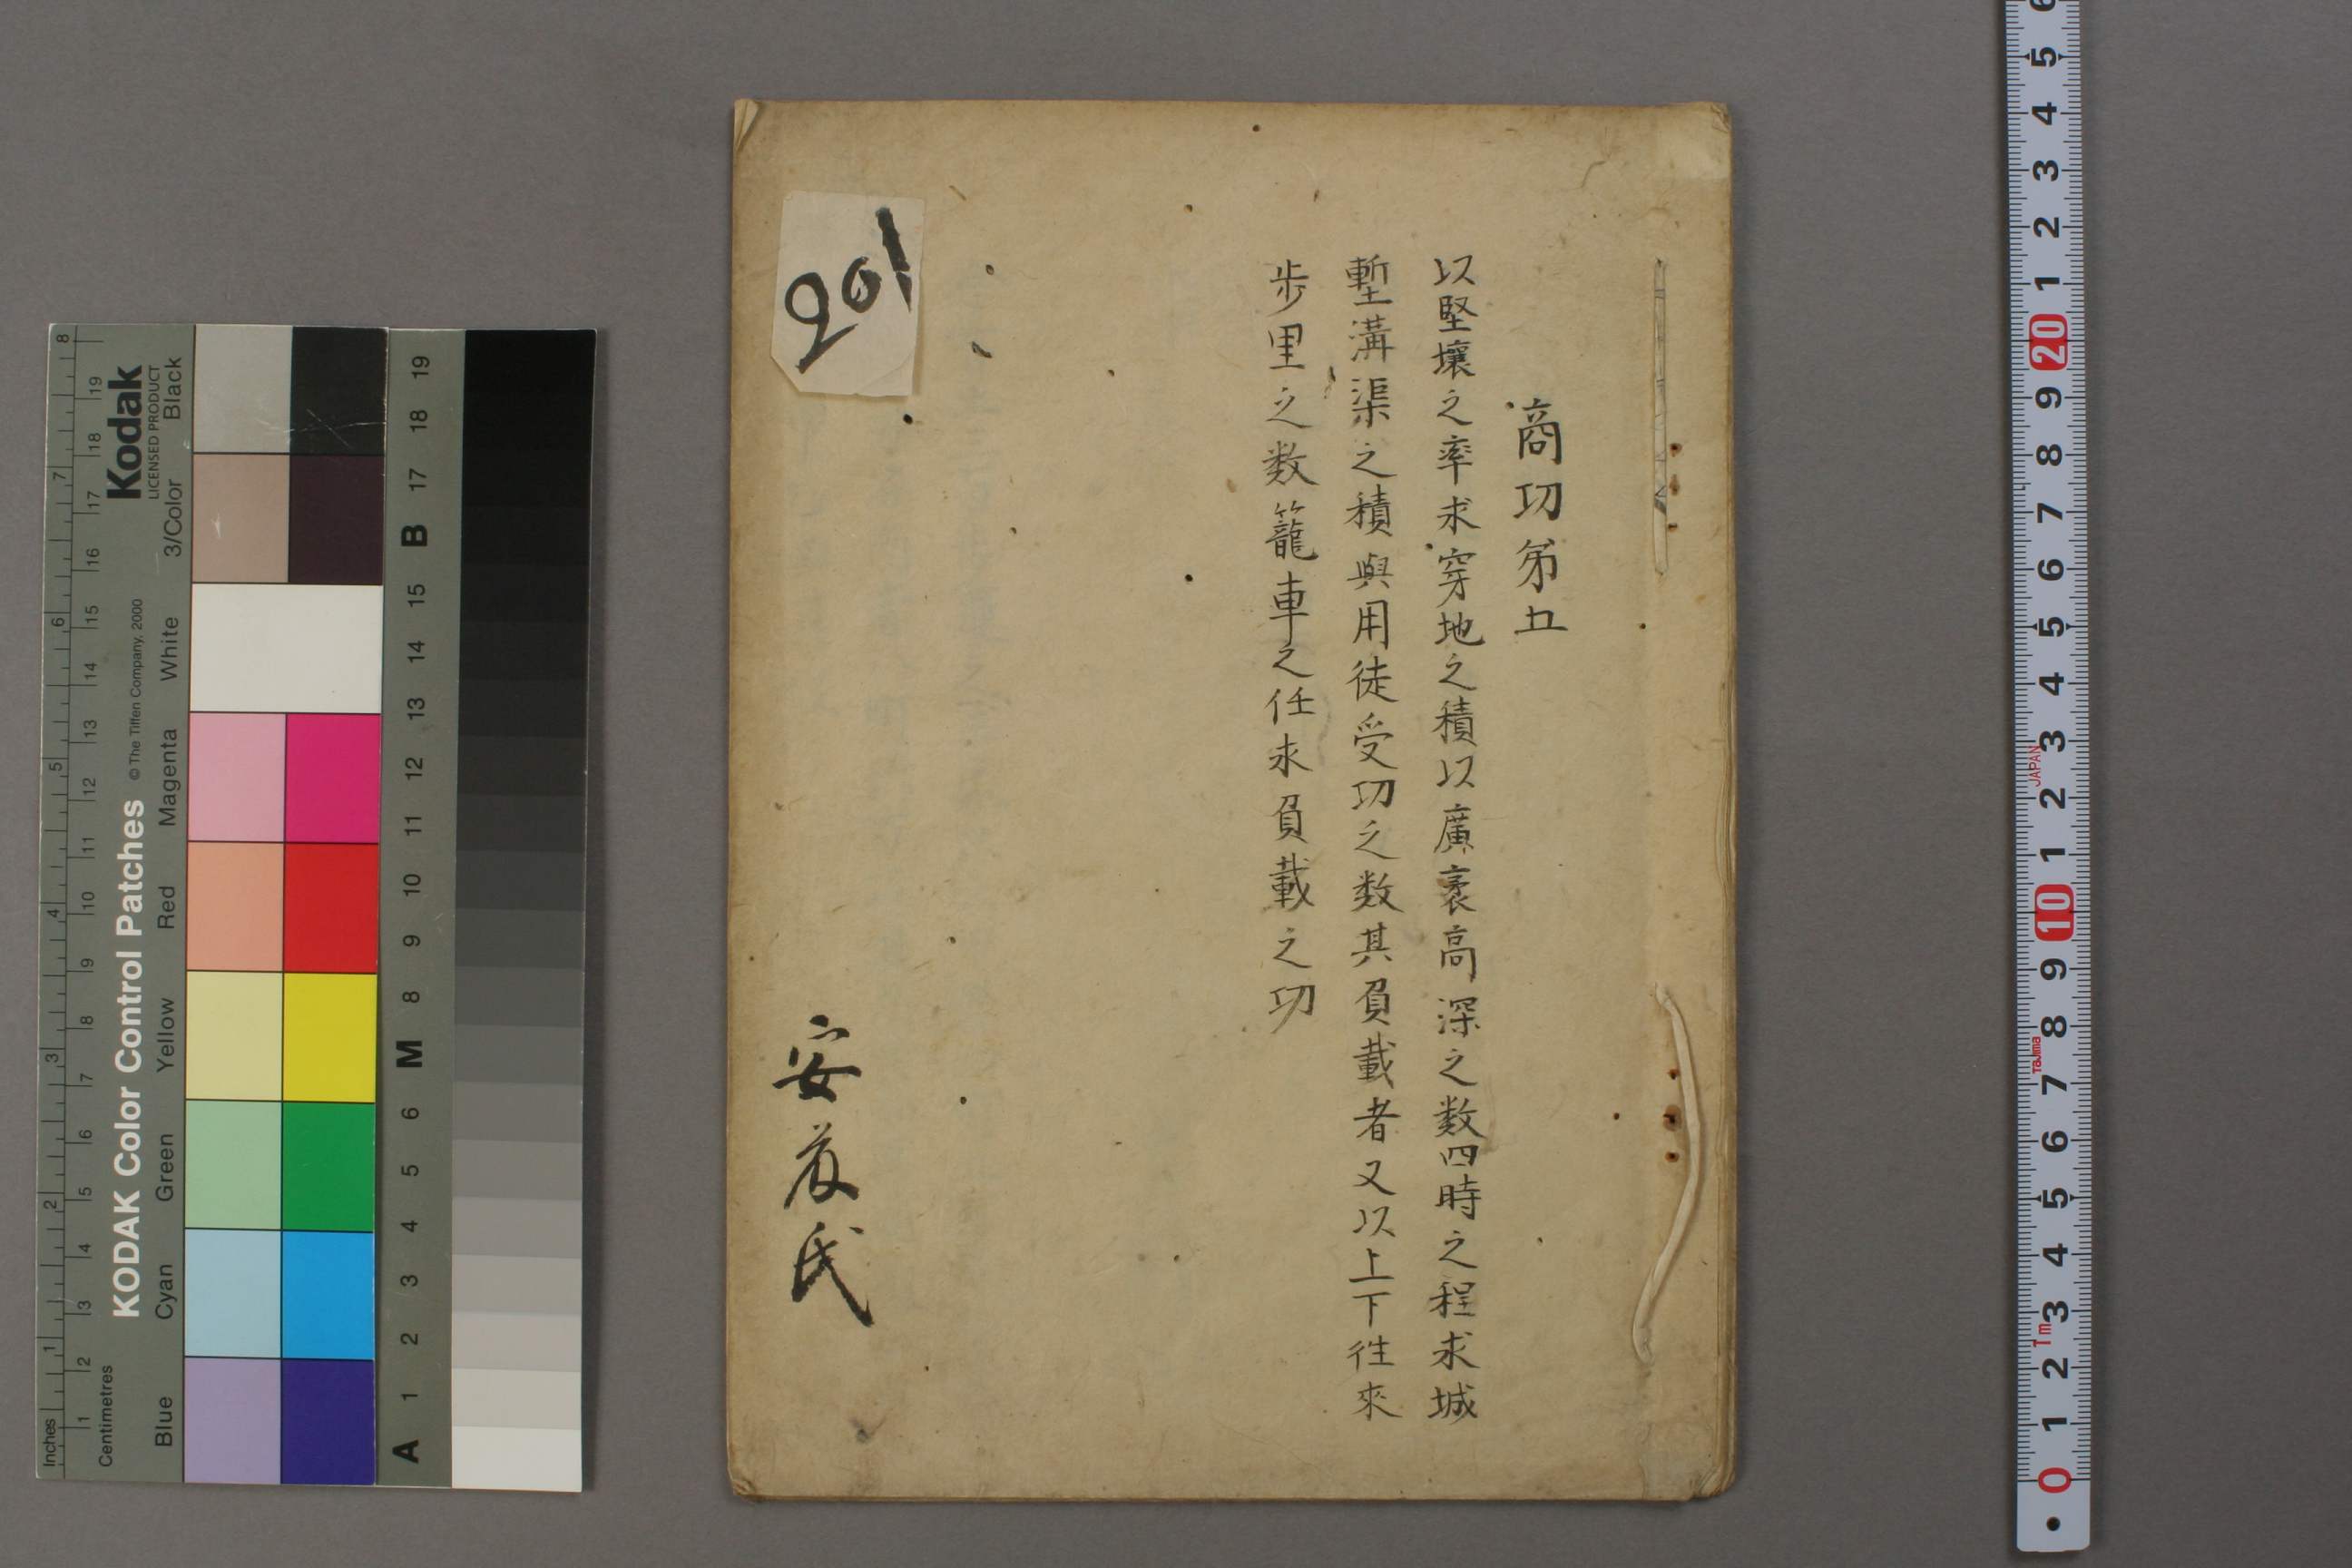 商功第五
以堅壤之率求穿地之積以廣袤高深之数四時之程求城
塹溝渠之積與用徒受功之数其負載者又以上下往來
步里之数籠車之任求負載之功
201
安蔵氏
Kodak
LICENSED PRODUCT
KODAK Color Control Patches
© The Tiffen Company, 2000
Inches
1 2 3 4 5 6 7 8
Centimetres
1 2 3 4 5 6 7 8 9 10 11 12 13 14 15 16 17 18 19
Blue Cyan Green Yellow Red Magenta White 3/Color Black
A 1 2 3 4 5 6 M 8 9 10 11 12 13 14 15 B 17 18 19
6 5 4 3 2 1 20 9 8 7 6 5 4 3 2 1 10 9 8 7 6 5 4 3 2 1 0
JAPAN
Tajima
1m